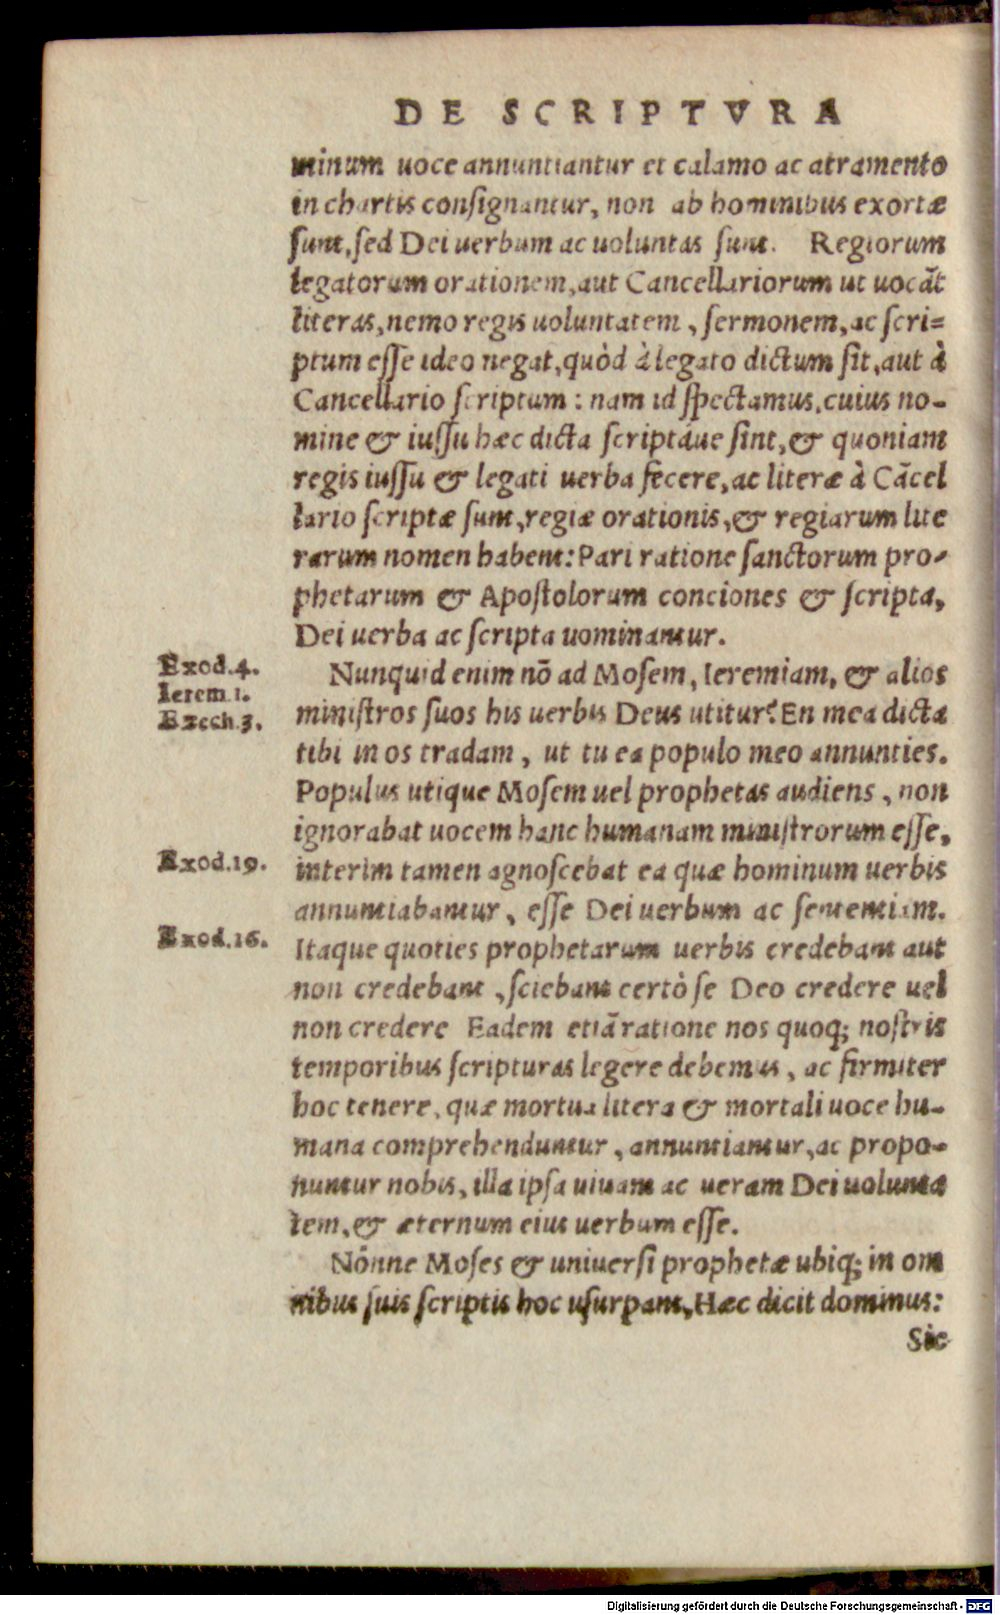 DE SCRIPTVRA
minum uoce annuntiantur et calamo ac atramento
in chartis consignantur, non ab hominibus exortæ
sunt, sed Dei uerbum ac uoluntas sunt. Regiorum
legatorum orationem, aut Cancellariorum ut uocãt
literas, nemo regis uoluntatem, sermonem, ac scri=
ptum esse ideo negat, quòd à legato dictum sit, aut à
Cancellario scriptum: nam id spectamus, cuius no-
mine & iussu hæc dicta scriptáue sint, & quoniam
regis iussu & legati uerba fecere, ac literæ à Cãcel
lario scriptæ sunt, regiæ orationis, & regiarum lite
rarum nomen habent: Pari ratione sanctorum pro-
phetarum & Apostolorum conciones & scripta,
Dei uerba ac scripta uominantur.
Exod.4.
Ierem.1.
Ezech.3.
Nunquid enim nõ ad Mosem, Ieremiam, & alios
ministros suos his uerbis Deus utitur? En mea dicta
tibi in os tradam, ut tu ea populo meo annunties.
Populus utique Mosem uel prophetas audiens, non
ignorabat uocem hanc humanam ministrorum esse,
Exod.19.
interim tamen agnoscebat ea quæ hominum uerbis
annuntiabantur, esse Dei uerbum ac sententiam.
Exod.16.
Itaque quoties prophetarum uerbis credebant aut
non credebant, sciebant certò se Deo credere uel
non credere Eadem etiã ratione nos quoq; nostris
temporibus scripturas legere debemus, ac firmiter
hoc tenere, quæ mortua litera & mortali uoce hu-
mana comprehenduntur, annuntiantur, ac propo-
nuntur nobis, illa ipsa uiuam ac ueram Dei uolunta
tem, & æternum eius uerbum esse.
Nónne Moses & uniuersi prophetæ ubiq; in om
nibus suis scriptis hoc usurpant, Hæc dicit dominus:
Sic
Digitalisierung gefördert durch die Deutsche Forschungsgemeinschaft - DFG